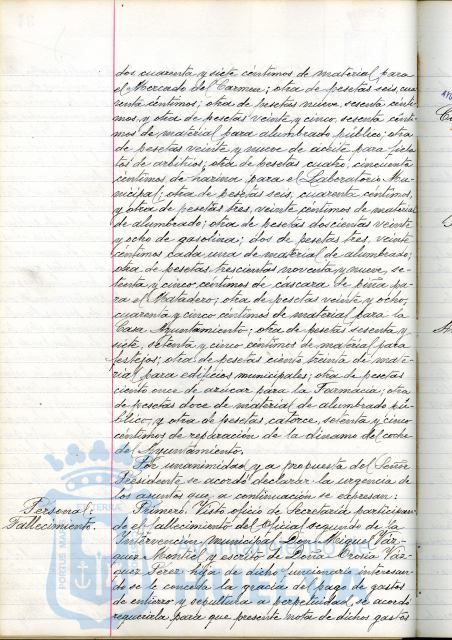 dos cuarenta y siete céntimos de material para
el Mercado del Carmen; otra de pesetas seis, cua
renta céntimos; otra de pesetas nueve, sesenta cénti
mos, y otra de pesetas veinte y cinco, sesenta cénti
mos de material para alumbrado público; otra
de pesetas veinte y nueve de aceite para fiela
tos de arbitrios; otra de pesetas cuatro, cincuenta
céntimos de harina para el Laboratorio Mu
nicipal; otra de pesetas seis, cuarenta céntimos,
y otra de pesetas tres, veinte céntimos de material
de alumbrado; otra de pesetas doscientas veinte
y ocho de gasolina; dos de pesetas tres, veinte
céntimos cada una de material de alumbrado;
otra de pesetas trescientas noventa y nueve, se-
tenta y cinco céntimos de cáscara de piña pa-
ra el Matadero; otra de pesetas veinte y ocho,
cuarenta y cinco céntimos de material para la
Casa Ayuntamiento; otra de pesetas sesenta y
siete, setenta y cinco céntimos de material para
festejos; otra de pesetas ciento treinta de mate-
rial para edificios municipales; otra de pesetas
ciento once de azúcar para la Farmacia; otra
de pesetas doce de material de alumbrado pú-
blico, y otra de pesetas catorce, setenta y cinco
céntimos de reparación de la dinamo del coche
del Ayuntamiento.
Por unanimidad y a propuesta del Señor
Presidente se acordó declarar la urgencia de
los asuntos que a continuación se expresan:
Personal:
Fallecimiento.
Primero. Visto oficio de Secretaría participan-
do el fallecimiento del Oficial segundo de la
Intervención municipal Don Miguel Váz-
quez Montiel y escrito de Doña Váz-
quez Pérez hija de dicho funcionario interesan-
do se le conceda la gracia del pago de gastos
de entierro y sepultura a perpetuidad, se acordó
requerirla para que presente nota de dichos gastos